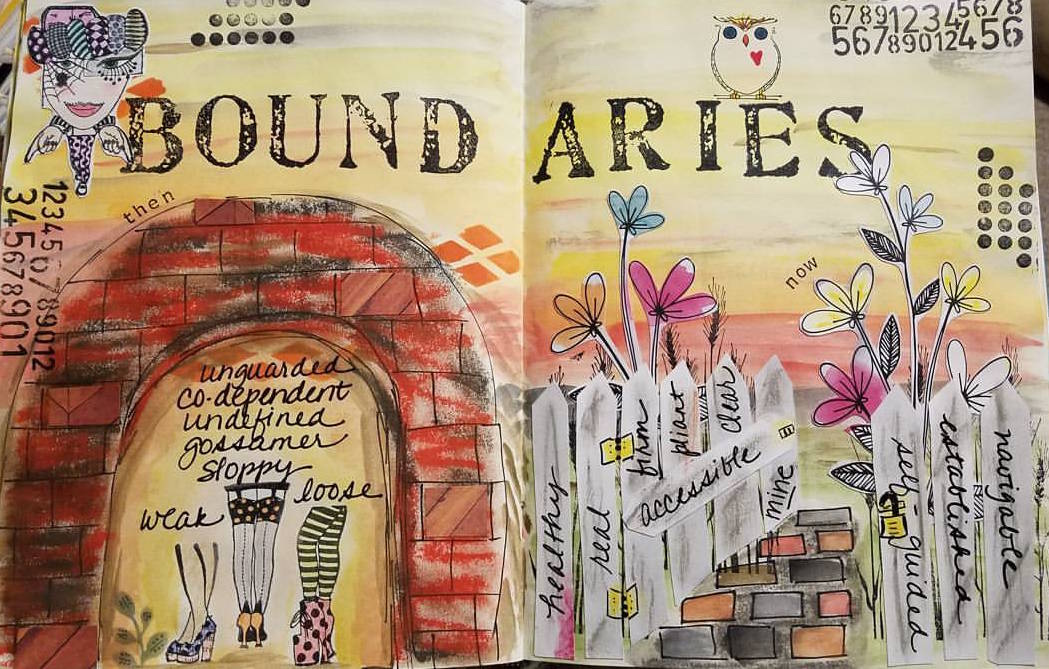 BOUND
then
unguarded
co-dependent
undefined
gossamer
sloppy
loose
weak
123456789012
345678901
ARIES
678912345678
56789012456
now
healthy
real
firm
pliant
clear
accessible
mine
self-guided
established
navigable